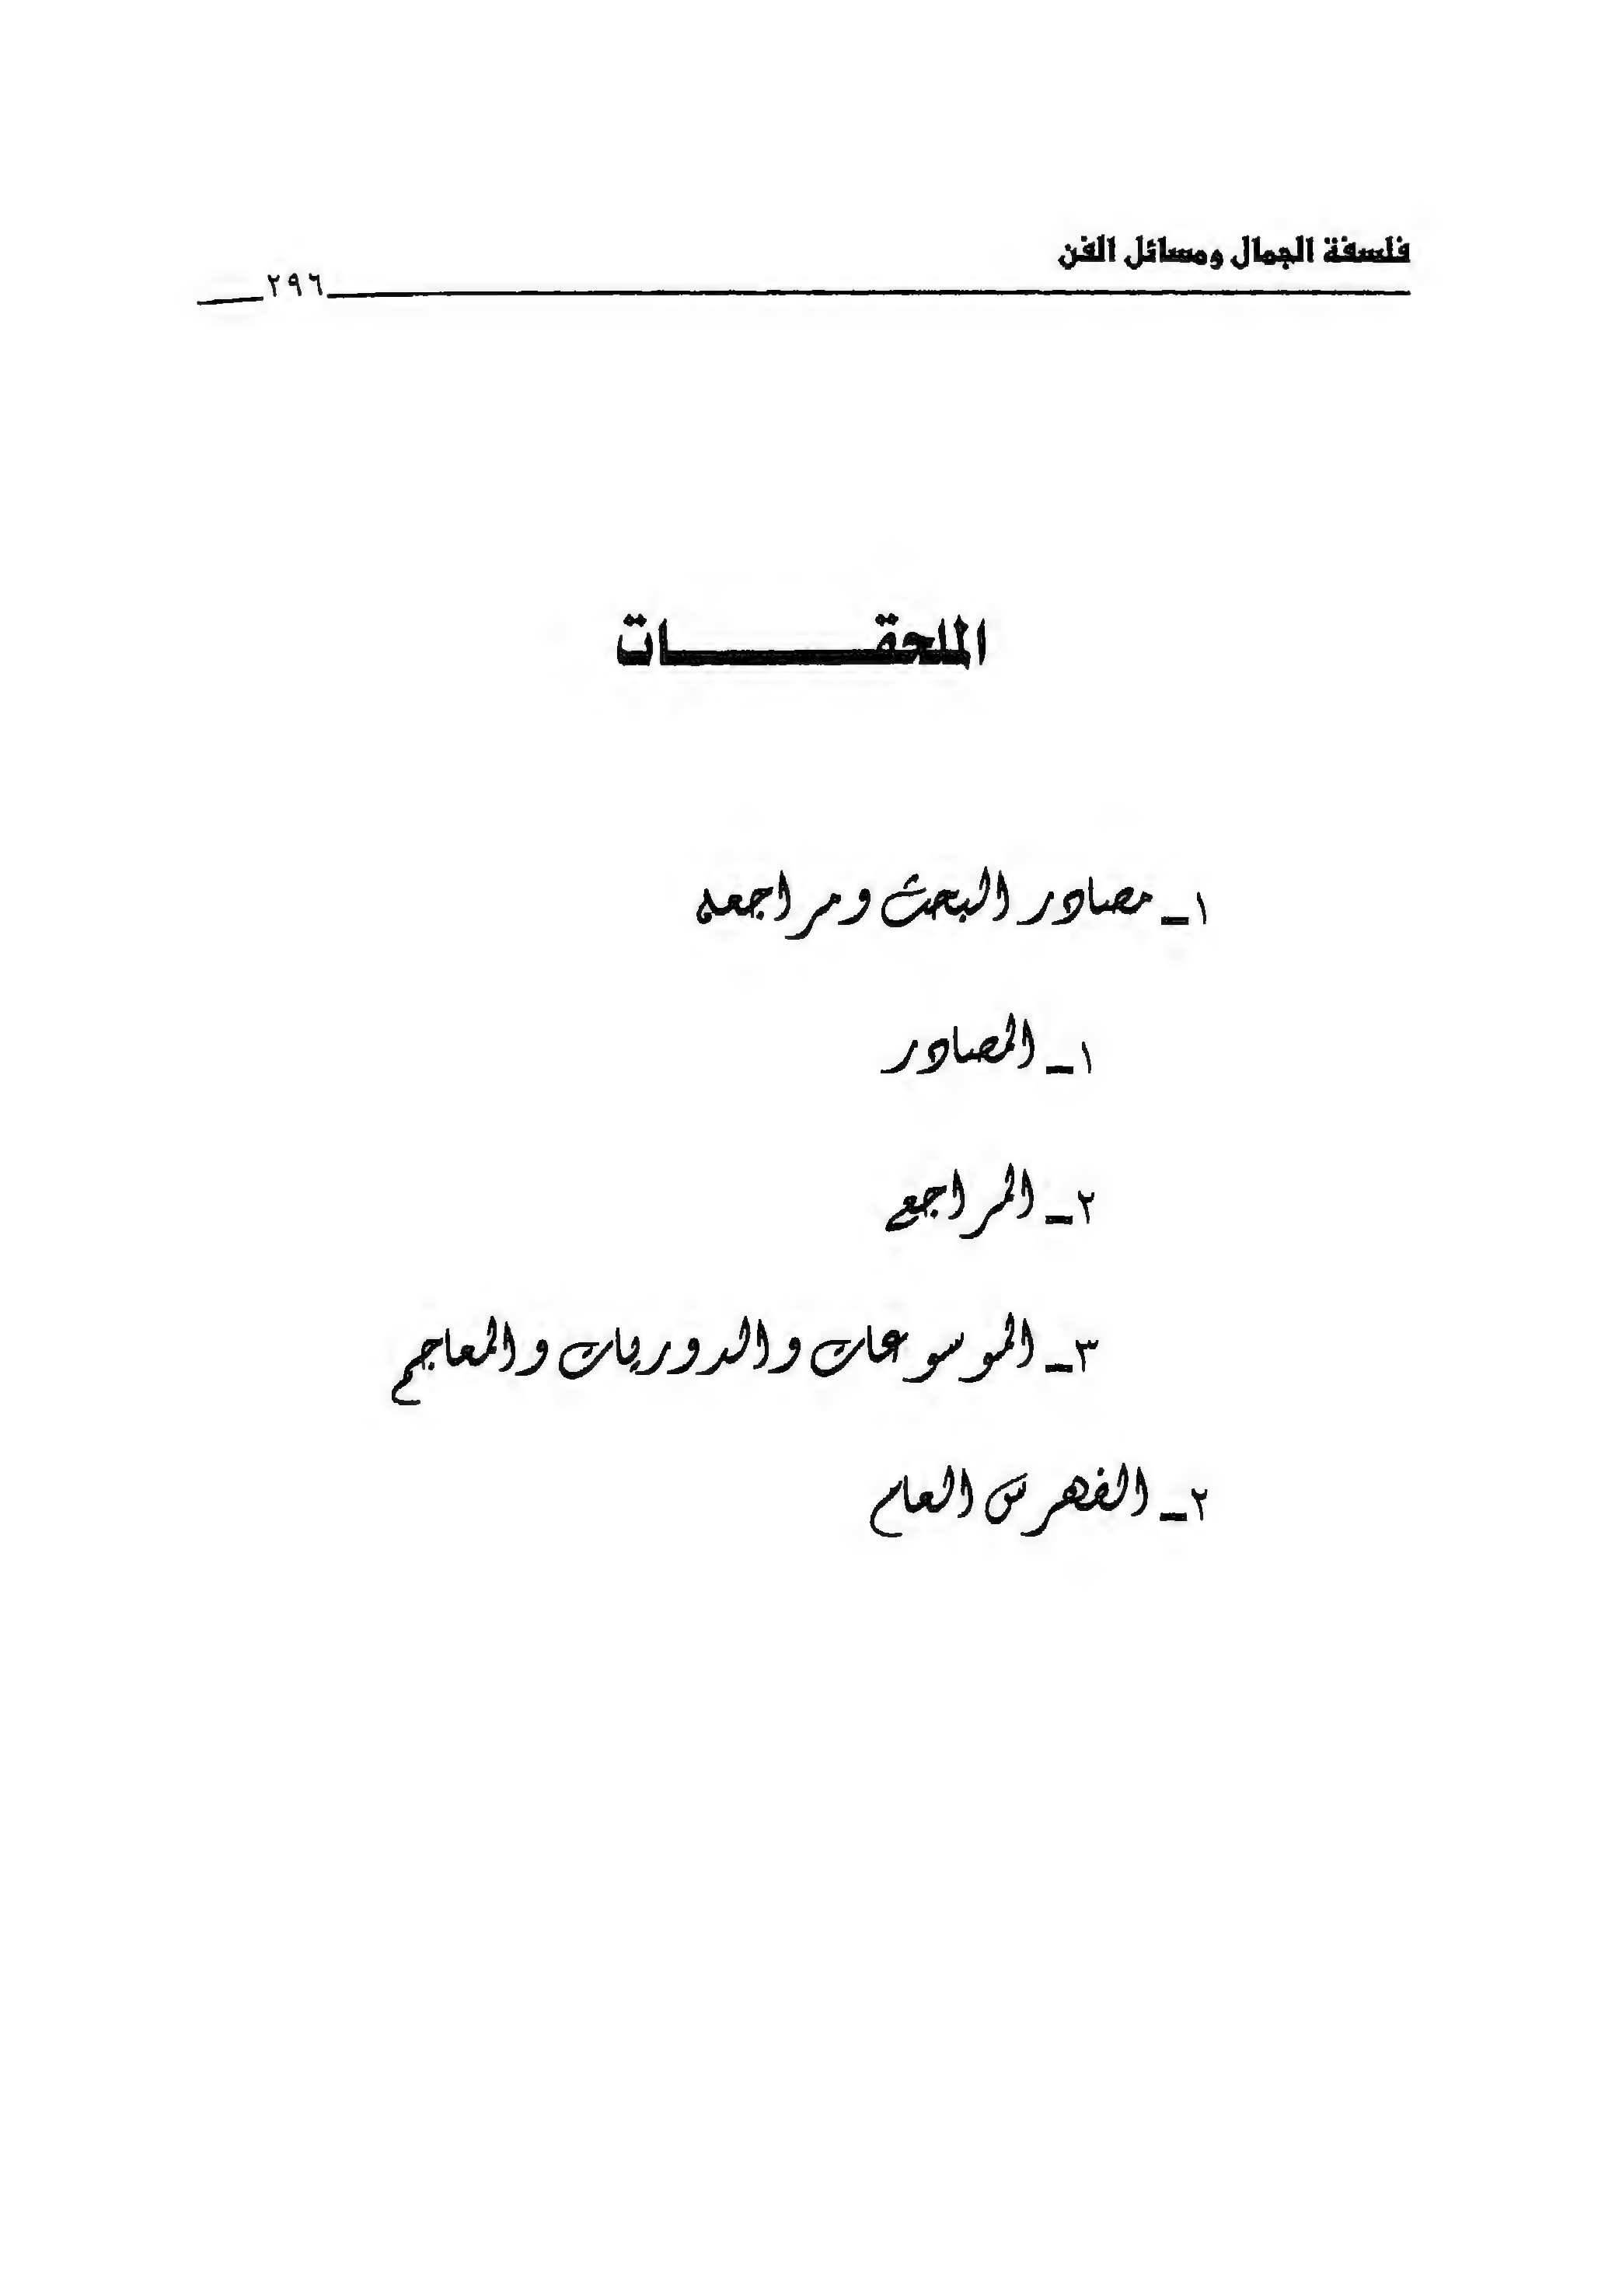 فلسفة الجمال ومسائل الفن
٢٩٦
الملحقـــــــــات
١ـ مصادر البحث ومراجعه
١ـ المصادر
٢ـ المراجع
٣ـ الموسوعات والدوريات والمعاجم
٢ـ الفهرس العام